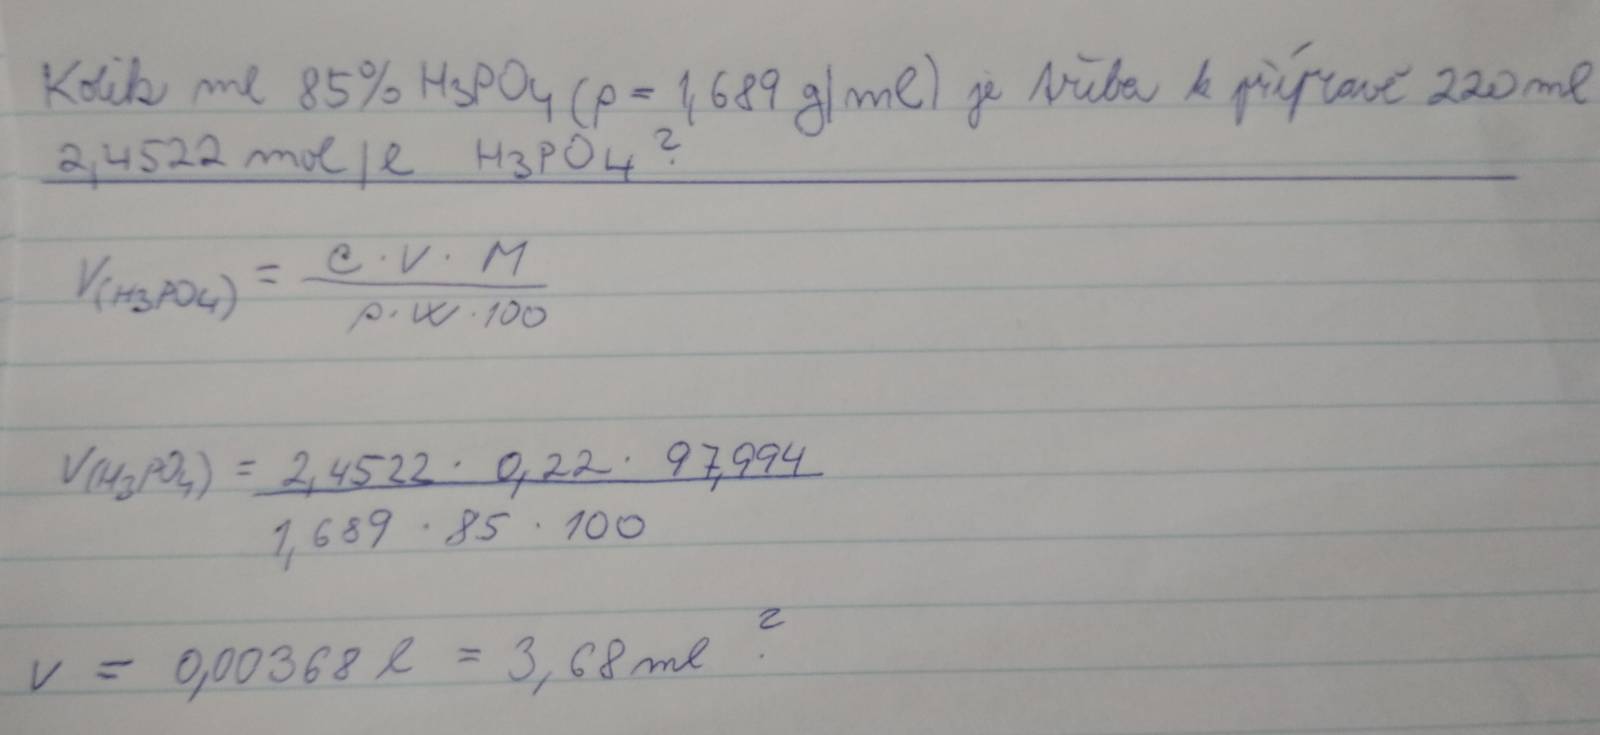 Kolik ml 85% H3PO4 (ρ = 1,689 g/ml) je třeba k přípravě 220 ml
2,4522 mol/l H3PO4?
V(H3PO4) = c · V · M / ρ · w · 100
V(H3PO4) = 2,4522 · 0,22 · 97,994 / 1,689 · 85 · 100
V = 0,00368 l = 3,68 ml ?